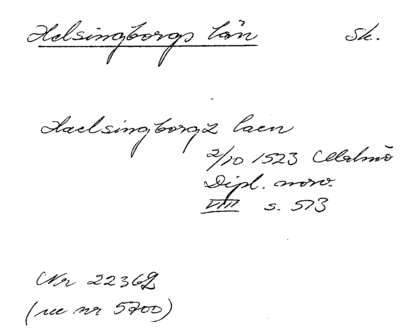 Helsingborgs län Sk.
Haelsingborgz laen
2/10 1523 Malmö
Dipl. norv.
VIII s. 573
Nr 22362
(se nr 5700)